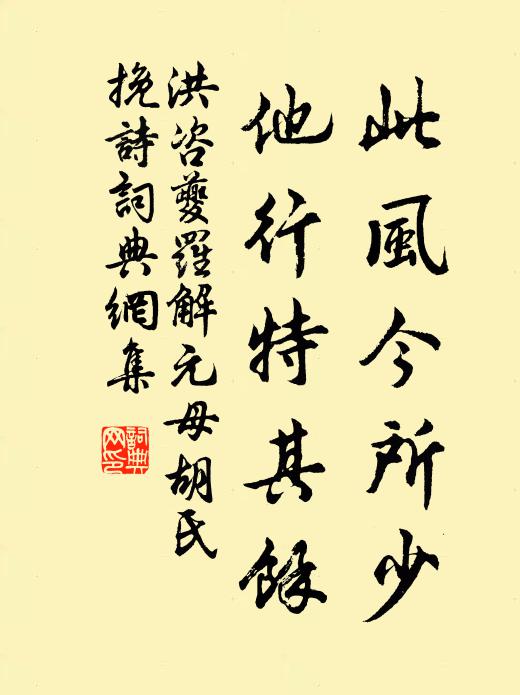 此風今所少
他行特其餘
洪咨夔羅解元母胡氏
挽詩詞典網集
詞典網印